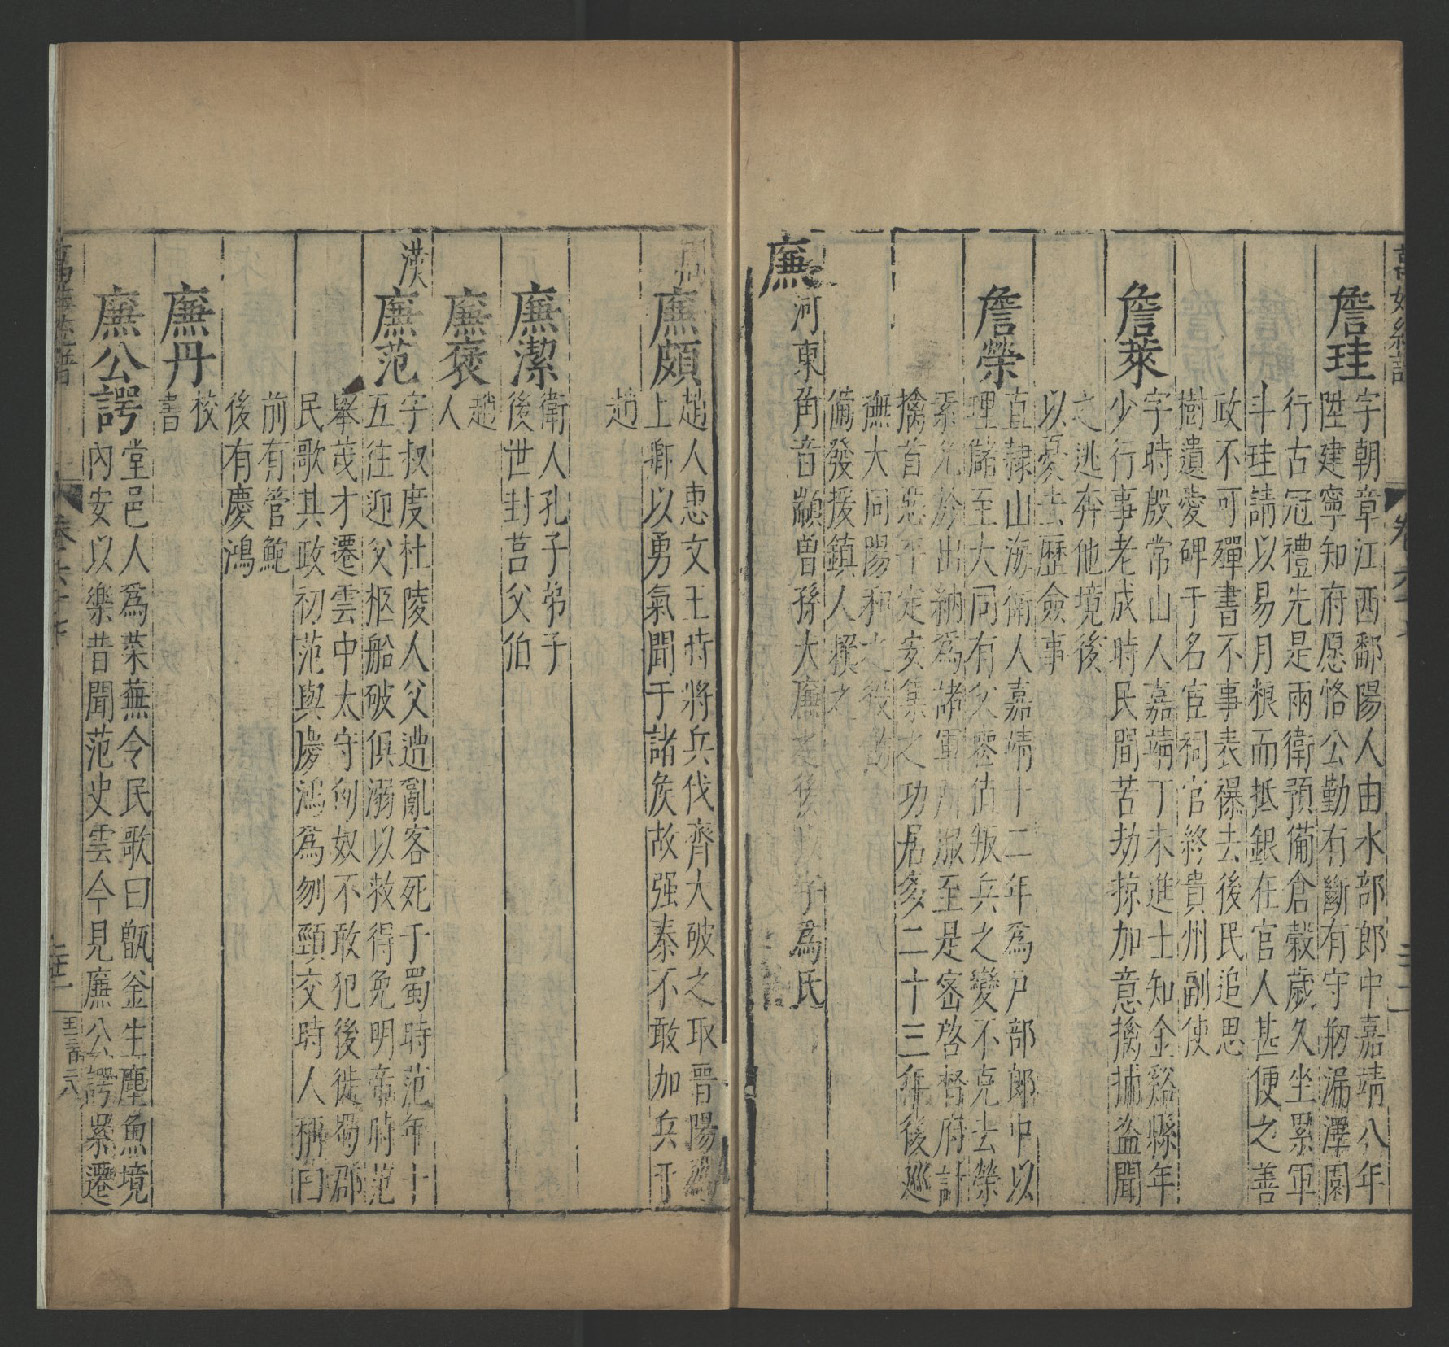 詹珪
字朝章江西鄱陽人由水部郎中嘉靖八年
陞建寧知府愿恪公勤有斷有守捌漏澤園
行古冠禮先是兩衛預備倉穀歲久坐累軍
斗珪請以易月粮而抵銀在官人甚便之善
政不可殫書不事表襮去後民追思
樹遺愛碑于名宦祠官終貴州副使
詹萊
字時殷常山人嘉靖丁未進士知金谿縣年
少行事老成時民間苦劫掠加意擒捕盜聞
之逃奔他境後
以憂去歷僉事
詹榮
直隸山海衛人嘉靖十二年爲戶部郎中以
理儲至大同有
叛兵之變不克去榮
出納爲諸軍所服至是密啓督府計
擒首惡
之功居多二十三年後巡
撫大同陽和之役
備發援鎮人撰之
廉
河東
角音顓曾孫大廉之後以字爲氏
廉頗
趙人惠文王時將兵伐齊大破之取晋陽
上卿以勇氣聞于諸侯故强秦不敢加兵于
趙
廉潔
衛人孔子弟子
後世封莒父伯
廉褒
趙
人
漢
廉范
字叔度杜陵人父遭亂客死于蜀時范年十
五往迎父柩船破俱溺以救得免明帝時范
舉茂才遷雲中太守匈奴不敢犯後徙蜀郡
民歌其政初范與慶鴻爲刎頸交時人稱曰
前有管鮑
後有慶鴻
廉丹
校
書
廉公諤
堂邑人爲萊蕪令民歌曰甑釜生塵魚境
內安以樂昔聞范史雲今見廉公諤累遷